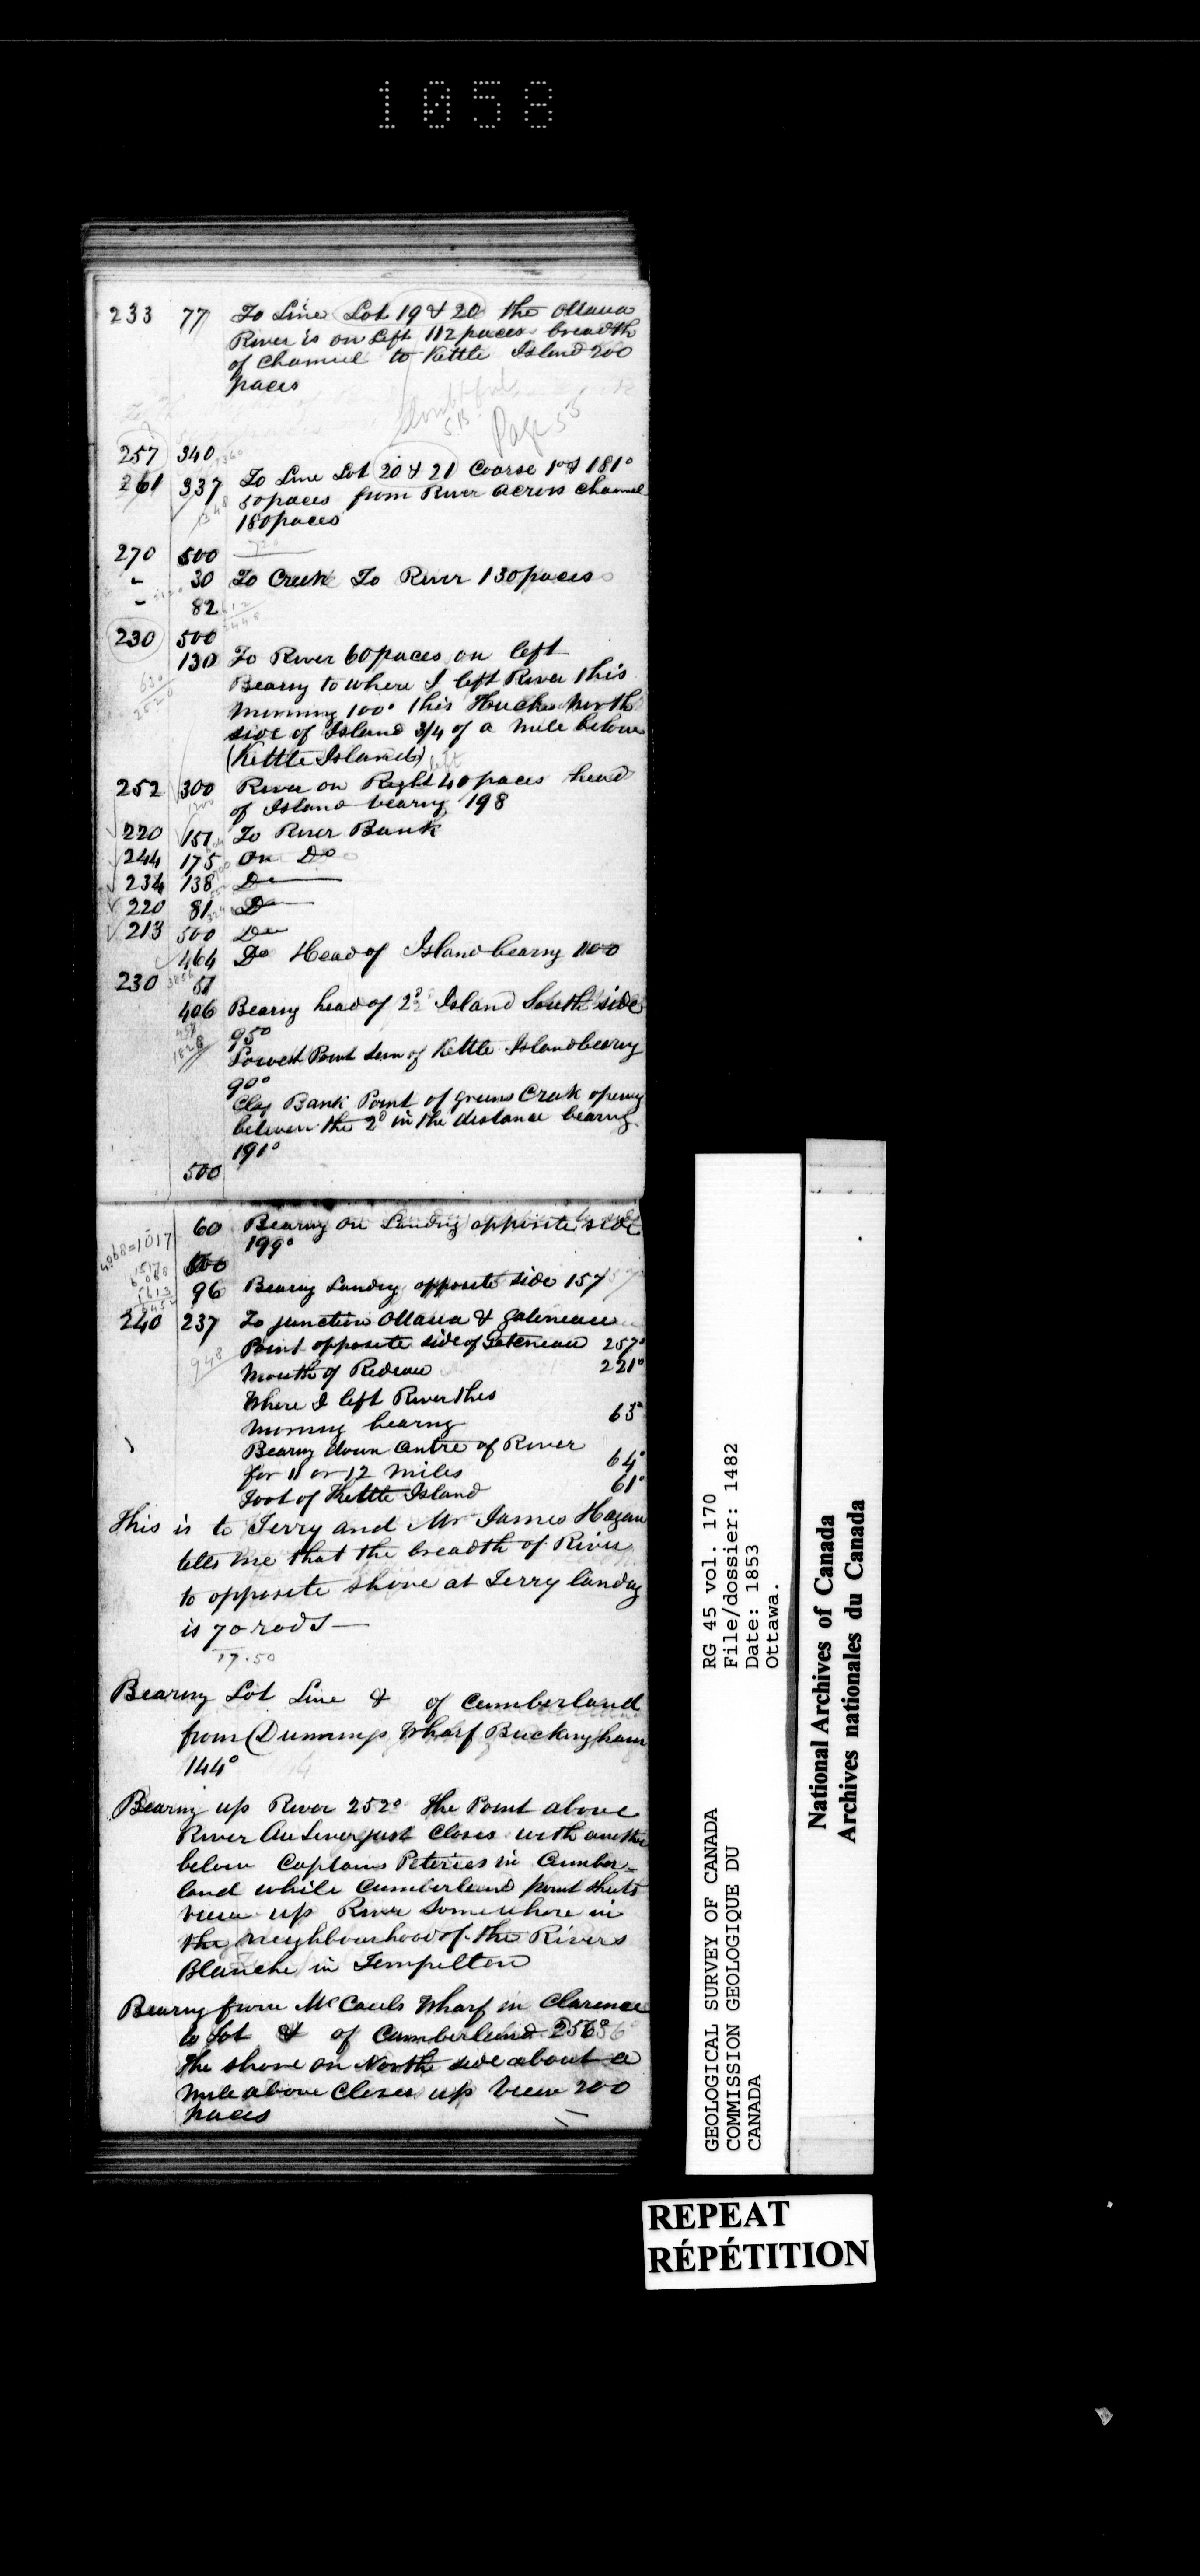 1058
233 77 To Line Lot 19 & 20 the Ottawa
River is on Left 112 paces breadth
of Channel to Kettle Island 200
paces
doubtful
Page 53
257 340
261 337 To Line Lot 20 & 21 Coarse 1° & 181°
50 paces from River across channel
180 paces
270 500
" 30 To Creek To River 130 paces
" 82
612
2448
230 500
130 To River 60 paces on left
630
2520
Bearng to where I left River this
Morning 100° this
side of Island 3/4 of a Mile below
(Kettle Island)
left
252 300 River on Right 40 paces head
1200
of Island bearng 198
220 151 To River Bank
244 175 On Do
234 138 D
220 81 D
213 500 Do
464 Do Head of Island bearng 100
3856
230 51
406 Bearng head of 2d Island South side
457
1828
95°
Lowest Point seen of Kettle Island bearng
90°
Clay Bank Point of greens Creek opening
between the 2d in the distance bearng
191°
500
60 Bearng on Landing opposite side
199°
4068=1017
500
96 Bearng Landng opposite side 157
240 237 To junction Ottawa & Gatineau
948
Point opposite side of Gateneau 257°
Mouth of Redeau 221°
Where I left River this
Morning bearng 63°
Bearng down Centre of River
for 11 or 12 Miles 64°
Foot of Kettle Island 61°
This is to Ferry and Mr James Hagan
tells me that the breadth of River
to opposite shore at Ferry landng
is 70 rods —
17.50
Bearng Lot Line & of Cumberland
from Dunnings Wharf Buckingham
144°
Bearng up River 252° the Point above
River Au Lever just Closes with another
below Captains Peteries in Cumber-
land while Cumberland Point shuts
view up River Somewhere in
the Neighbourhood of the Rivers
Blanche in Tempelton
Bearng from McCauls Wharf in Clarence
to Lot & of Cumberland 256°
the shore on North side about a
Mile above Closes up View 200
paces
RG 45 vol. 170
File/dossier: 1482
Date: 1853
Ottawa.
GEOLOGICAL SURVEY OF CANADA
COMMISSION GEOLOGIQUE DU
CANADA
National Archives of Canada
Archives nationales du Canada
REPEAT
RÉPÉTITION